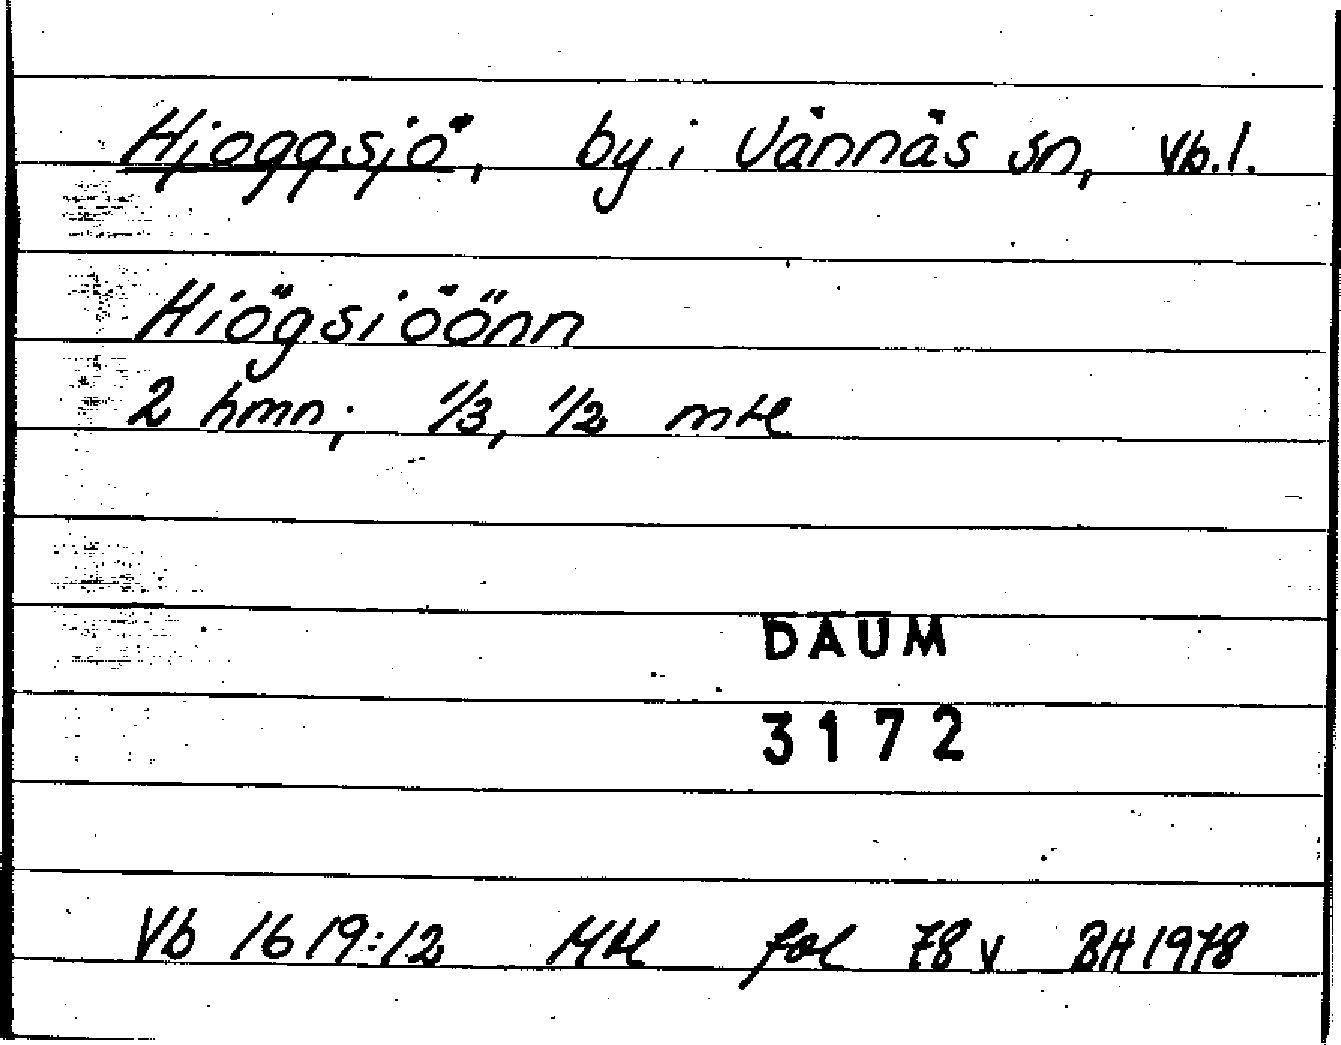 Hjoggsjö, by i Vännäs sn, Vb.l.
Hiögsiöönn
2 hmn; 1/3, 1/2 mtl
DAUM
3172
Vb 1619:12 Mtl fol 78 v BH 1978